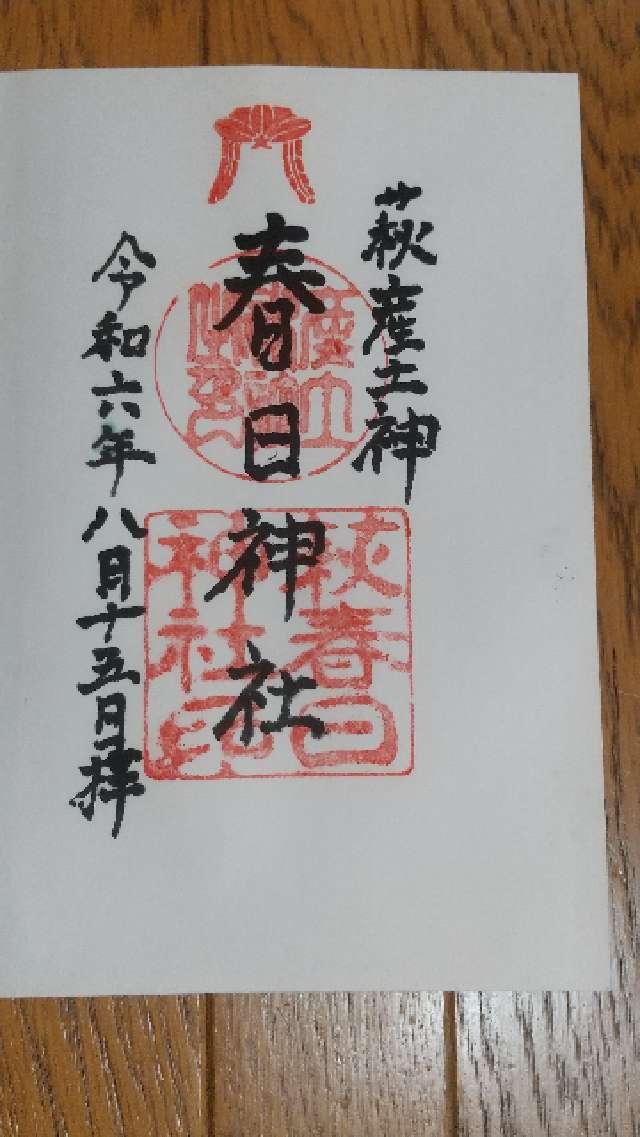 萩産土神
春日神社
萩春日
神社印
令和六年八月十五日拝